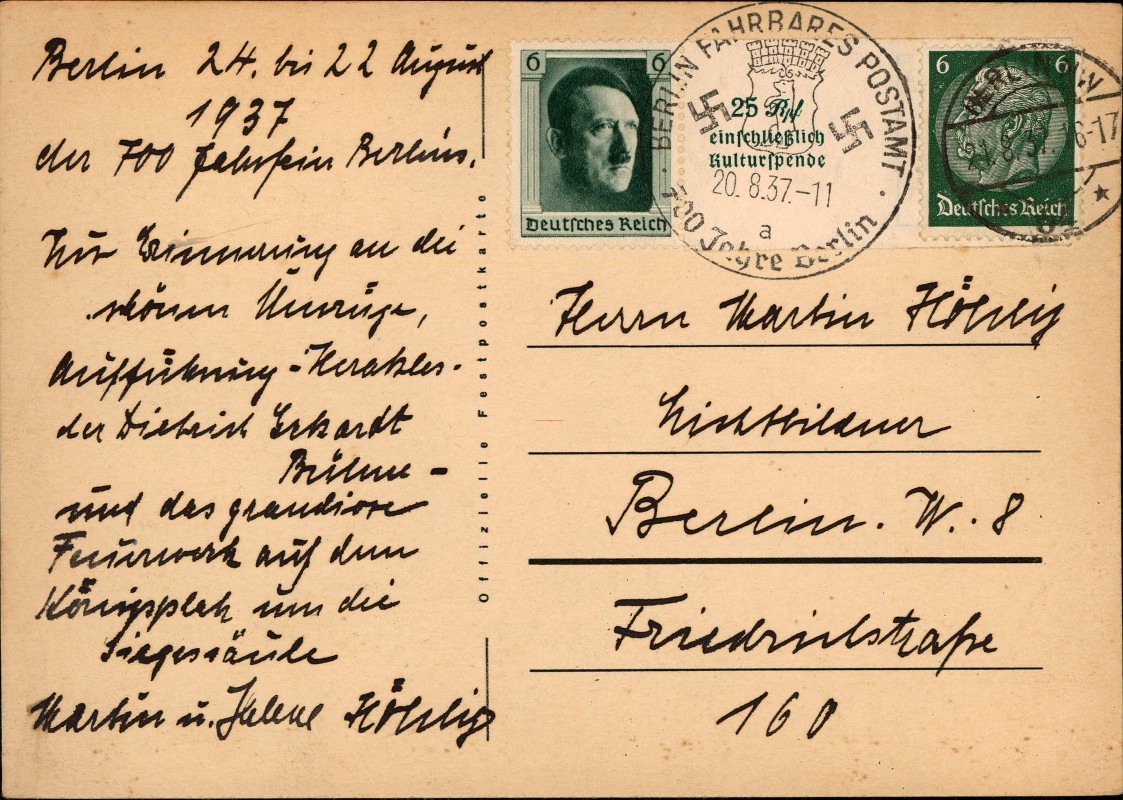 Berlin 24. bis 22 August
1937
der 700 Jahrfeir Berlins.
Zur Erinnerung an die
schönen Umzüge,
Aufführung - Herakles -
der Dietrich Eckardt
Bühne -
und das grandiose
Feuerwerk auf dem
Königsplatz um die
Siegessäule
Martin u. Helene Höhlig
Offizielle Festpostkarte
6 6
Deutsches Reich
25 Rpf
einschließlich
Kulturspende
BERLIN FAHRBARES POSTAMT
20.8.37.-11
a
700 Jahre Berlin
6 6
Deutsches Reich
BERLIN
Herrn Martin Höhlig
Lichtbildner
Berlin. W. 8
Friedrichstraße
160